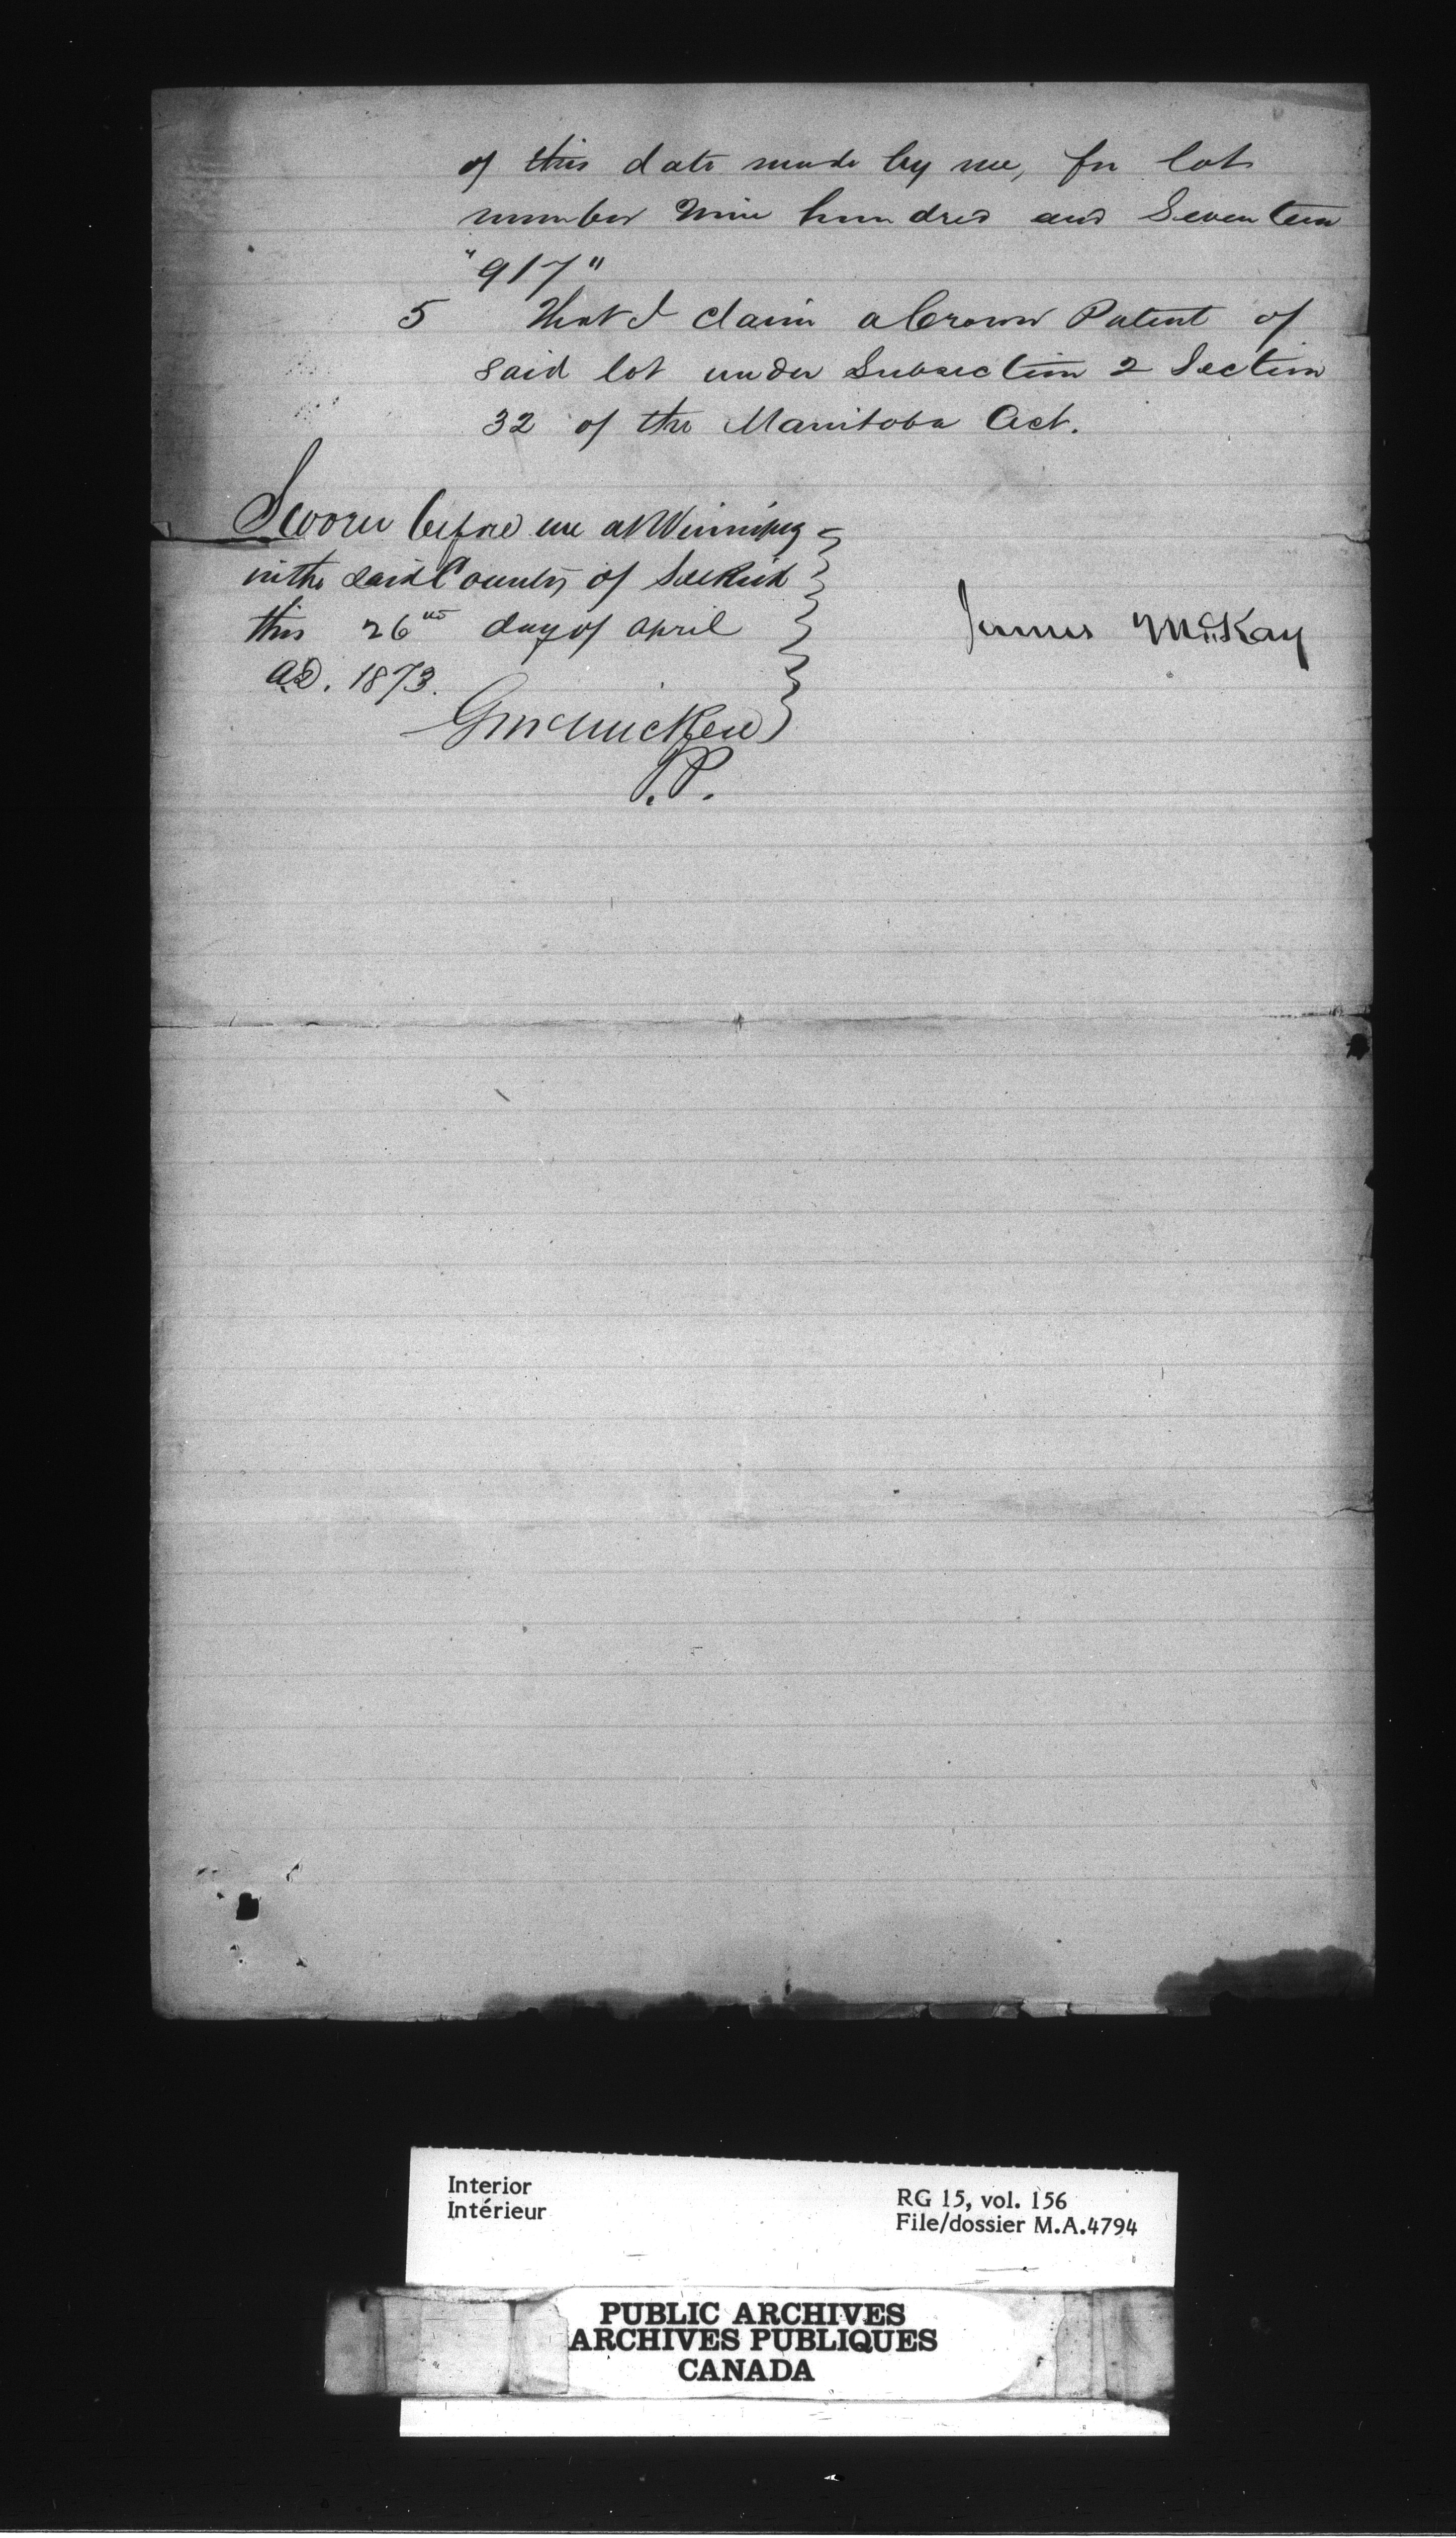 of this date made by me, for lot
number Nine hundred and Seventeen
"917"
5 That I claim a Crown Patent of
said lot under Subsection 2 Section
32 of the Manitoba Act.
Sworn before me at Winnipeg
in the said County of Selkirk
this 26th day of April
A.D. 1873.
James McKay
G McMicken
J.P.
Interior
Intérieur
RG 15, vol. 156
File/dossier M.A.4794
PUBLIC ARCHIVES
ARCHIVES PUBLIQUES
CANADA